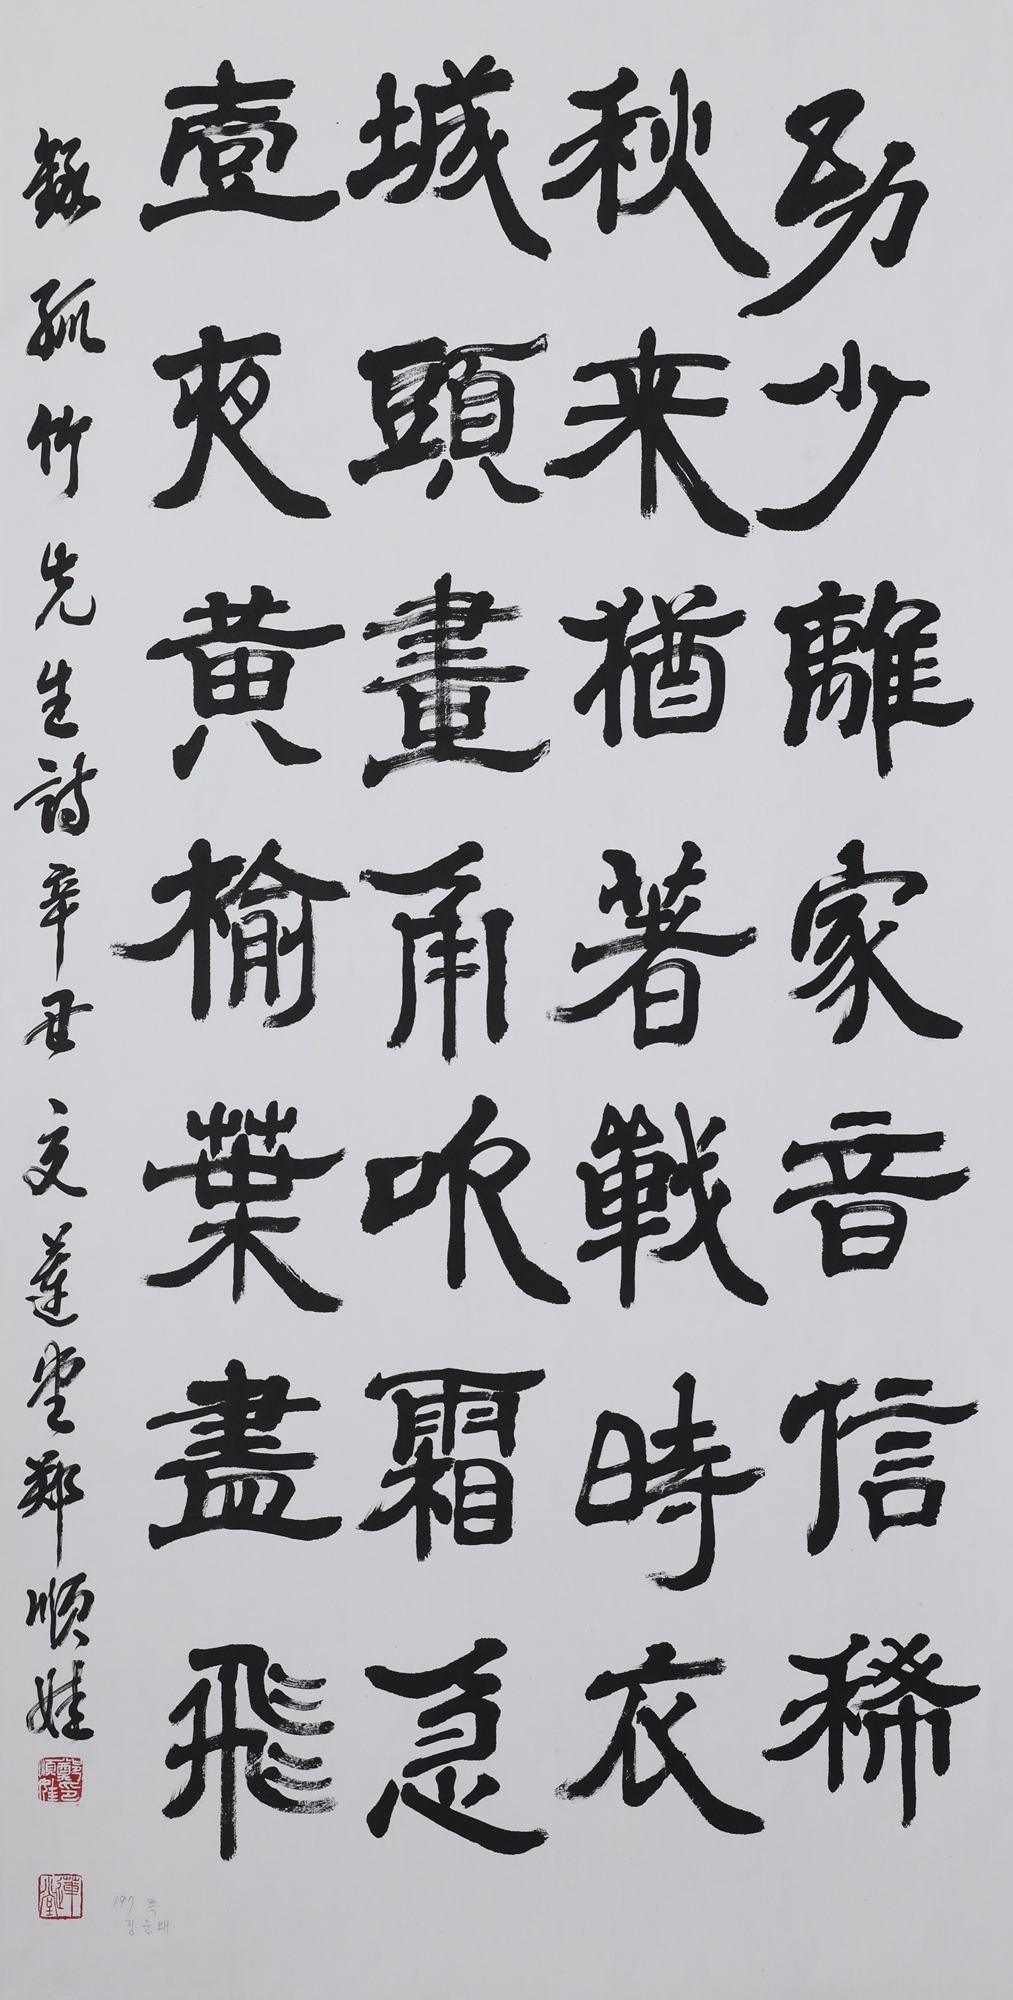 幼少離家音信稀
秋来猶著戰時衣
城頭畫角吹霜急
壹夜黄楡葉盡飛
錄孤竹先生詩辛丑夏蓮堂鄭順娃
鄭順娃印
蓮堂
197